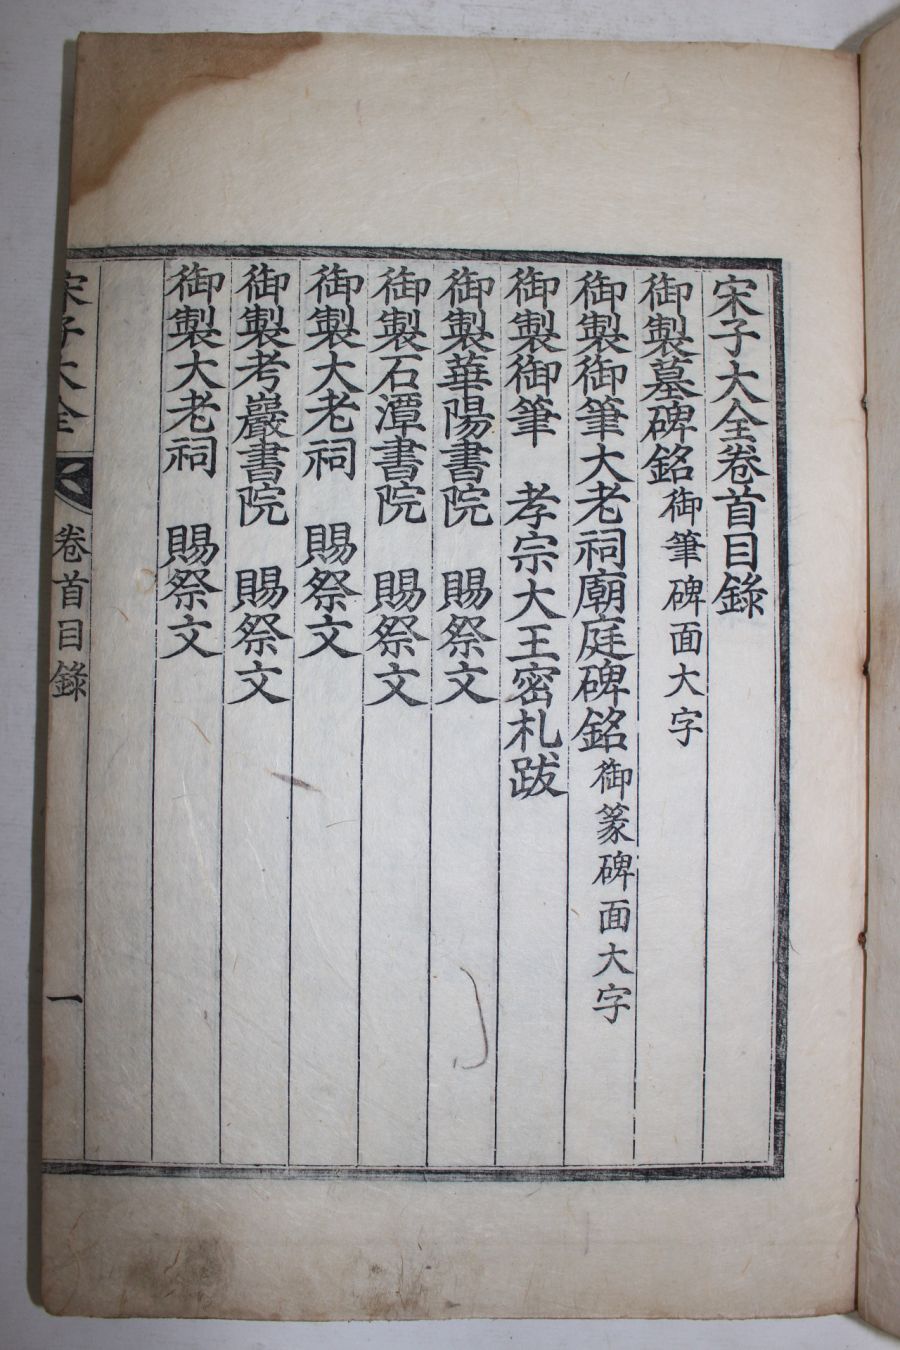 宋子大全卷首目錄
御製墓碑銘 御筆碑面大字
御製御筆大老祠廟庭碑銘 御篆碑面大字
御製御筆 孝宗大王密札跋
御製華陽書院 賜祭文
御製石潭書院 賜祭文
御製大老祠 賜祭文
御製考巖書院 賜祭文
御製大老祠 賜祭文
宋子大全 卷首目錄 一